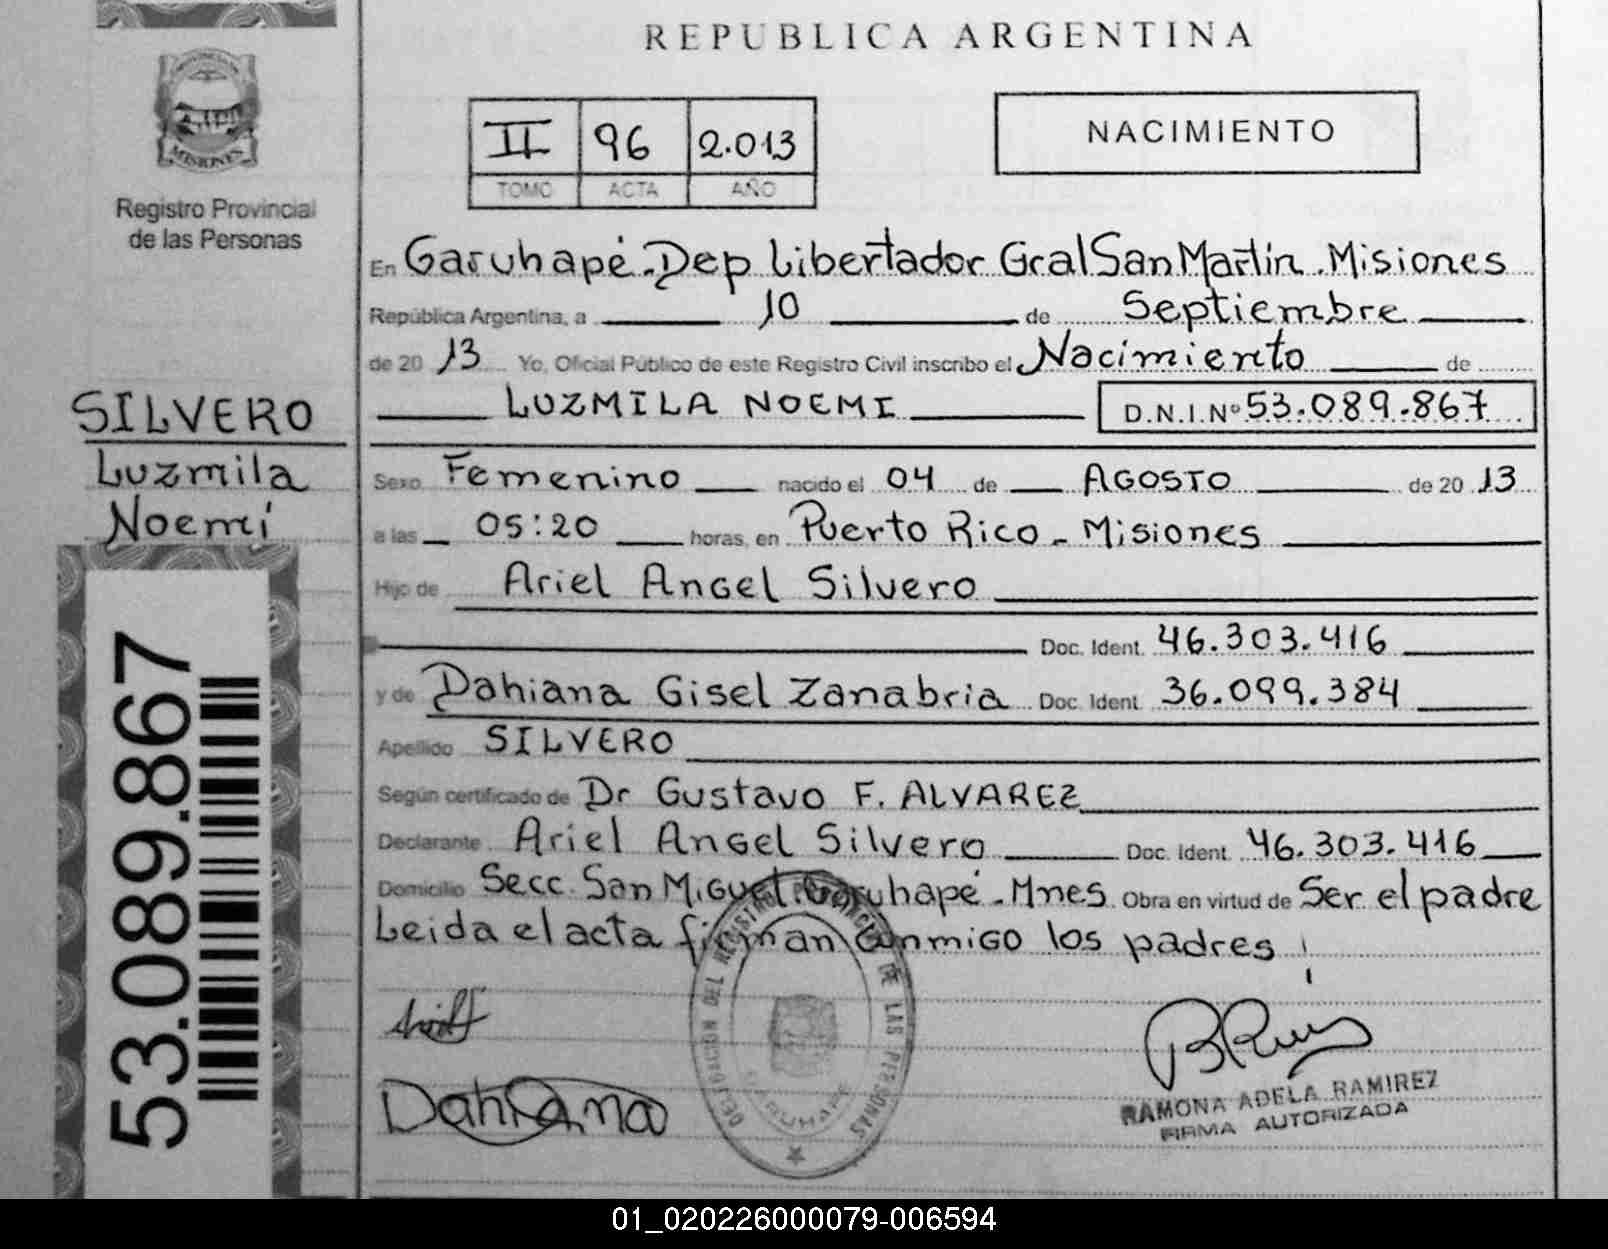 REPUBLICA ARGENTINA
MISIONES
Registro Provincial
de las Personas
II 96 2.013
TOMO ACTA AÑO
NACIMIENTO
En Garuhapé.Dep Libertador Gral San Martín.Misiones
República Argentina, a 10 de Septiembre
de 2013 Yo, Oficial Público de este Registro Civil inscribo el Nacimiento de
LUZMILA NOEMI D.N.I.Nº 53.089.867
SILVERO
Luzmila
Noemí
Sexo Femenino nacido el 04 de AGOSTO de 2013
a las 05:20 horas, en Puerto Rico - Misiones
Hijo de Ariel Angel Silvero
Doc. Ident. 46.303.416
y de Dahiana Gisel Zanabria Doc. Ident. 36.099.384
Apellido SILVERO
Según certificado de Dr Gustavo F. ALVAREZ
Declarante Ariel Angel Silvero Doc. Ident. 46.303.416
Domicilio Secc. San Miguel. Garuhapé - Mnes. Obra en virtud de Ser el padre
Leida el acta firman conmigo los padres
53.089.867
Dahiana
DELEGACION DEL REGISTRO PROVINCIAL DE LAS PERSONAS
GARUHAPE
RAMONA ADELA RAMIREZ
FIRMA AUTORIZADA
01_020226000079-006594